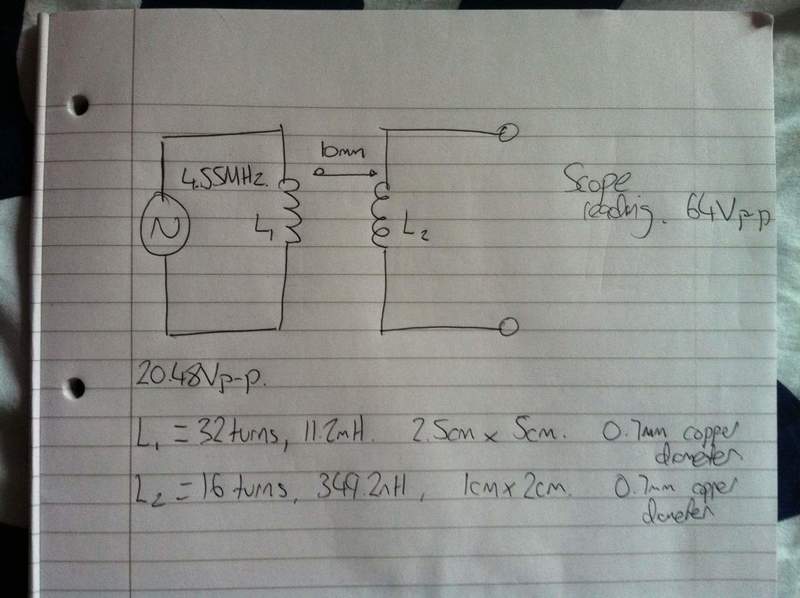 10mm
4.55MHz.
Scope
reading. 64Vp-p
N
L1
L2
20.48Vp-p.
L1 = 32turns, 11.2mH. 2.5cm x 5cm. 0.7mm copper
diameter
L2 = 16 turns, 349.2nH, 1cm x 2cm. 0.7mm copper
diameter